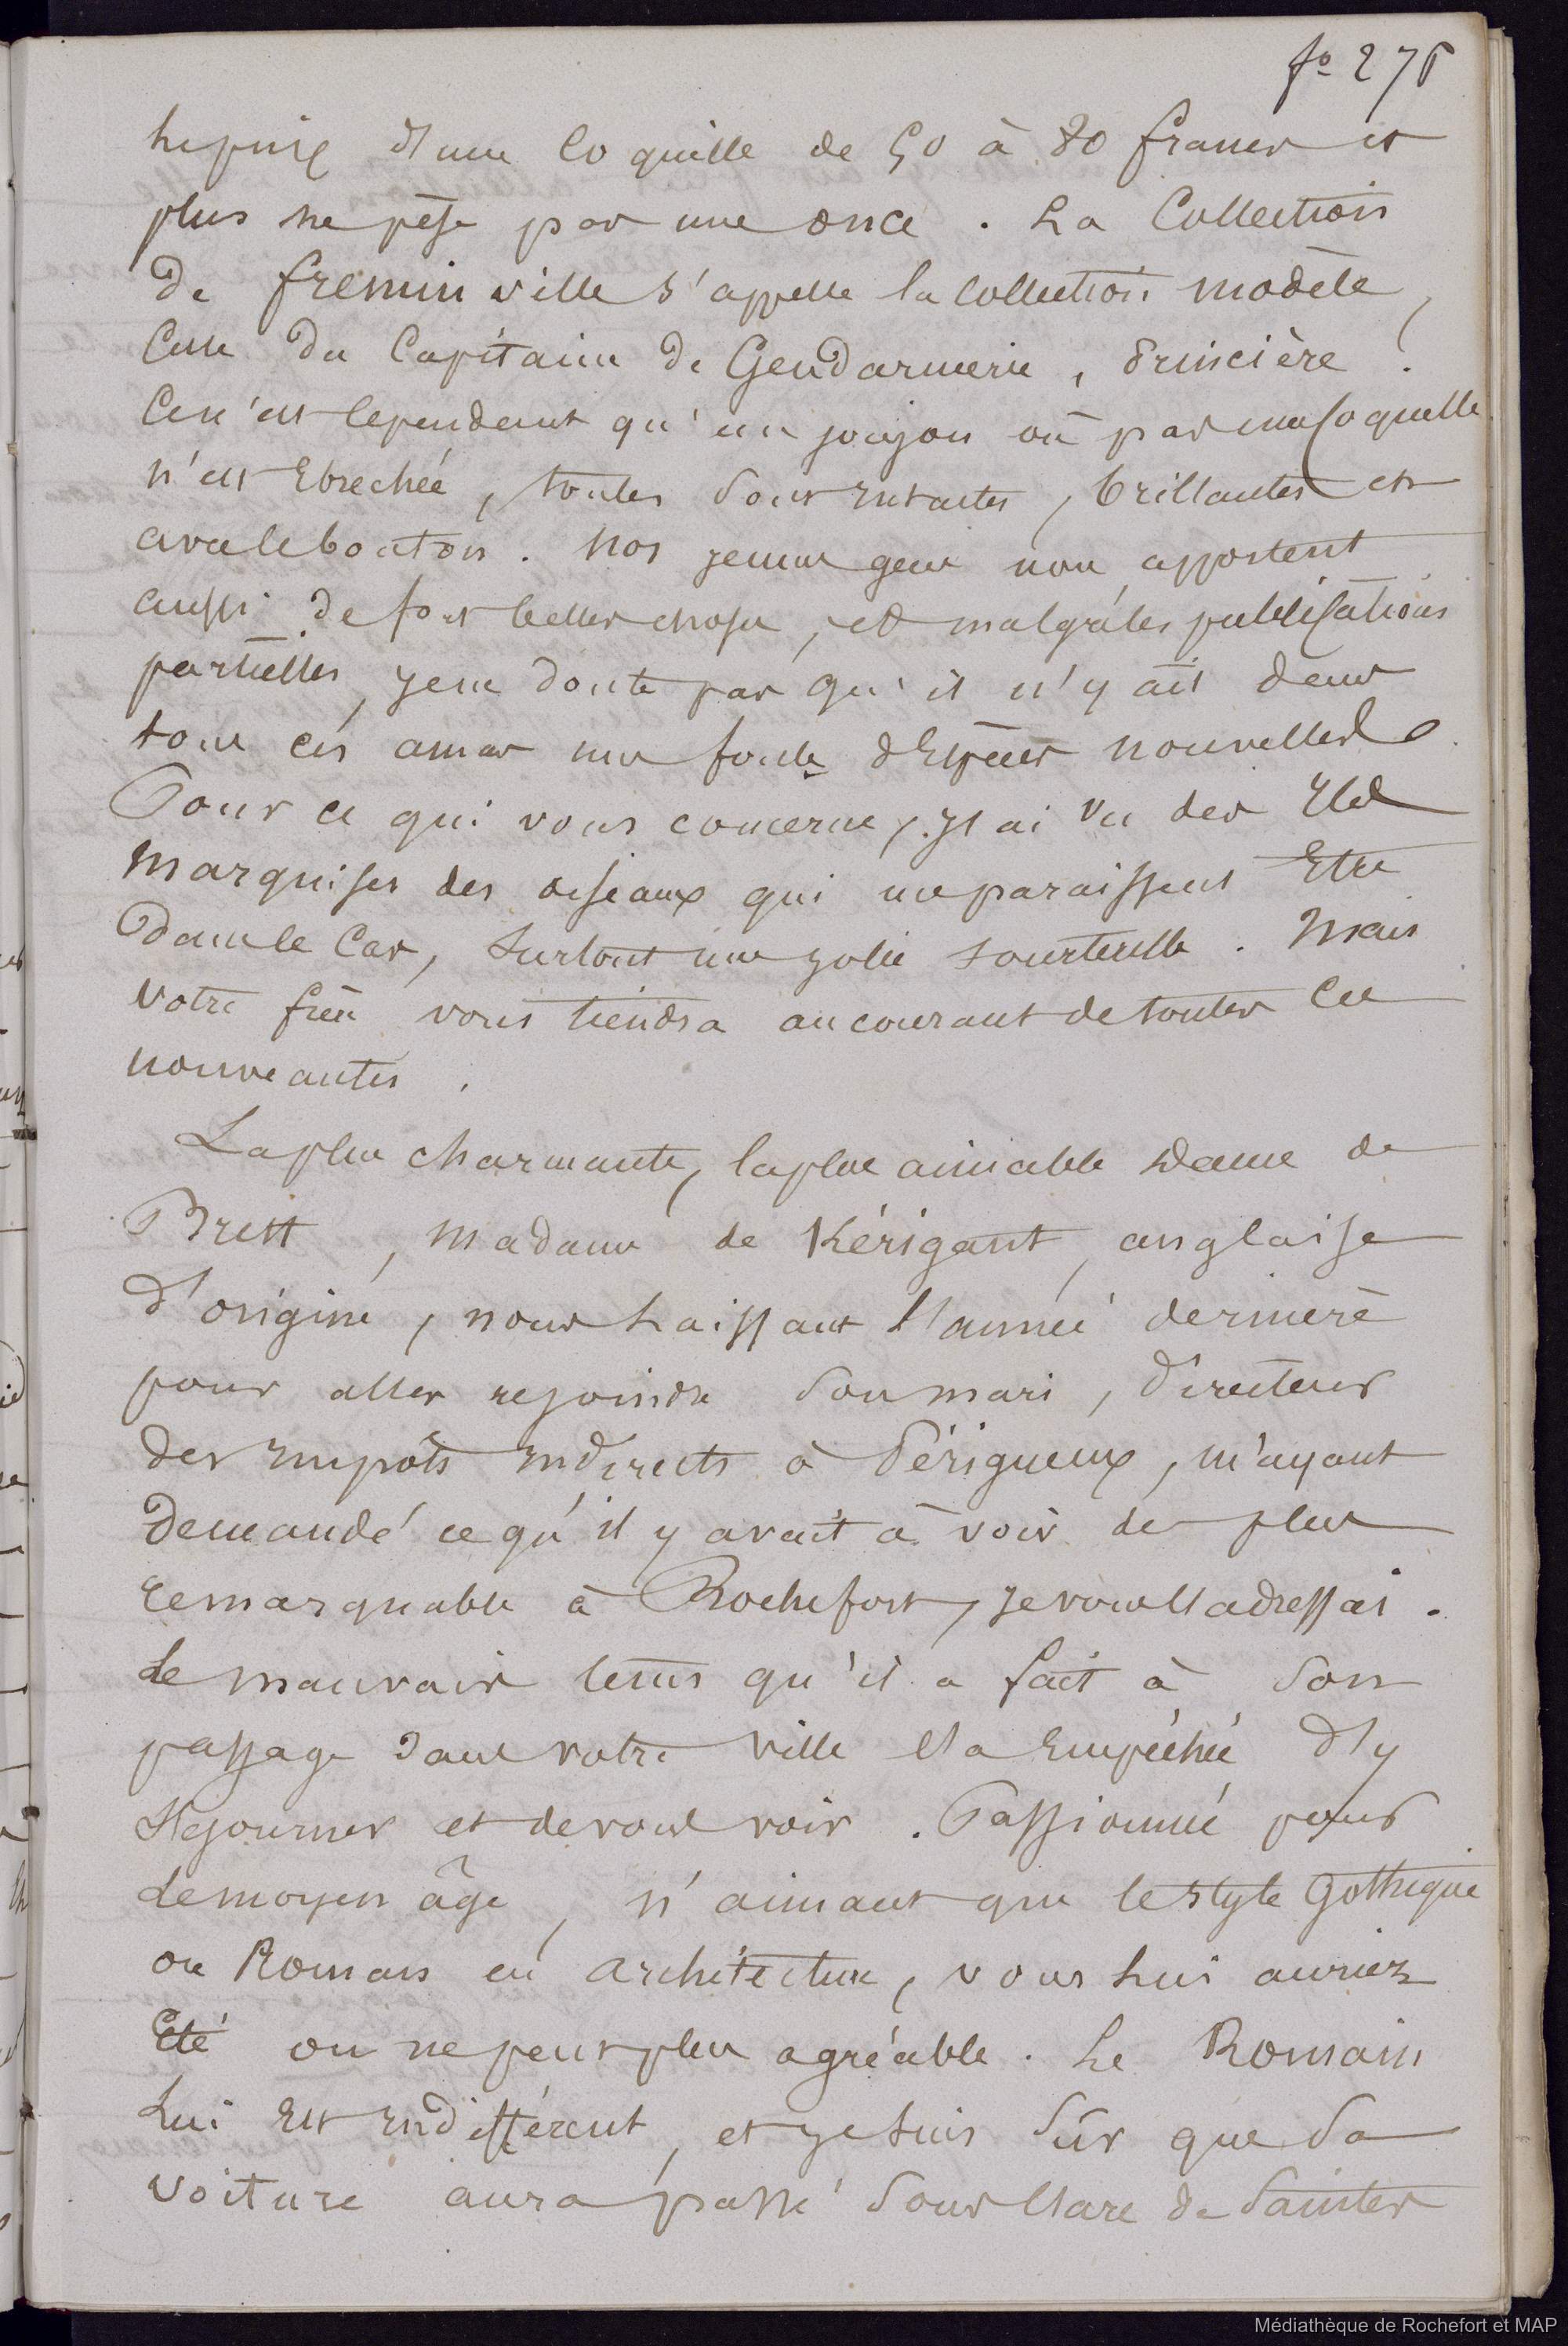 fo 276
le prix d'une Coquille de 50 à 80 francs et
plus ne pèse pas une once. La Collection
de freminville s'appelle la Collection modèle,
Celle du Capitaine de Gendarmerie, Princière !
Ce n'est Cependant qu'un joujou où pas une Coquille
n'est Ebrechée, toutes sont intactes, brillantes et
avale bouton. Nos jeunes gens nous apportent
aussi de fort belles choses, et malgré les publications
partielles, je ne doute pas qu'il n'y ait dans
tous ces amas une foule d'Espèces nouvelles.
Pour ce qui vous concerne, J'ai vu des Iles
Marquises des oiseaux qui me paraissent Etre
dans le Cas, surtout une jolie tourterelle. Mais
votre frère vous tiendra au courant de toutes Ces
nouveautés.
La plus charmante, la plus aimable dame de
Brest, Madame de Kérigant, anglaise
d'origine, nous laissant l'année dernière
pour aller rejoindre son mari, directeur
des impôts indirects à Périgueux, m'ayant
demandé ce qu'il y avait à voir de plus
remarquable à Rochefort, je vous l'adressai.
Le mauvais tems qu'il a fait à son
passage dans votre ville l'a Empéchée d'y
séjourner et de vous voir. Passionnée pour
le moyen âge, n'aimant que le style Gothique
ou Roman en architecture, vous lui auriez
Eté on ne peut plus agréable. Le Romain
lui Est indifférent, et je suis sûr que sa
voiture aura passé sous l'arc de Saintes
Médiathèque de Rochefort et MAP